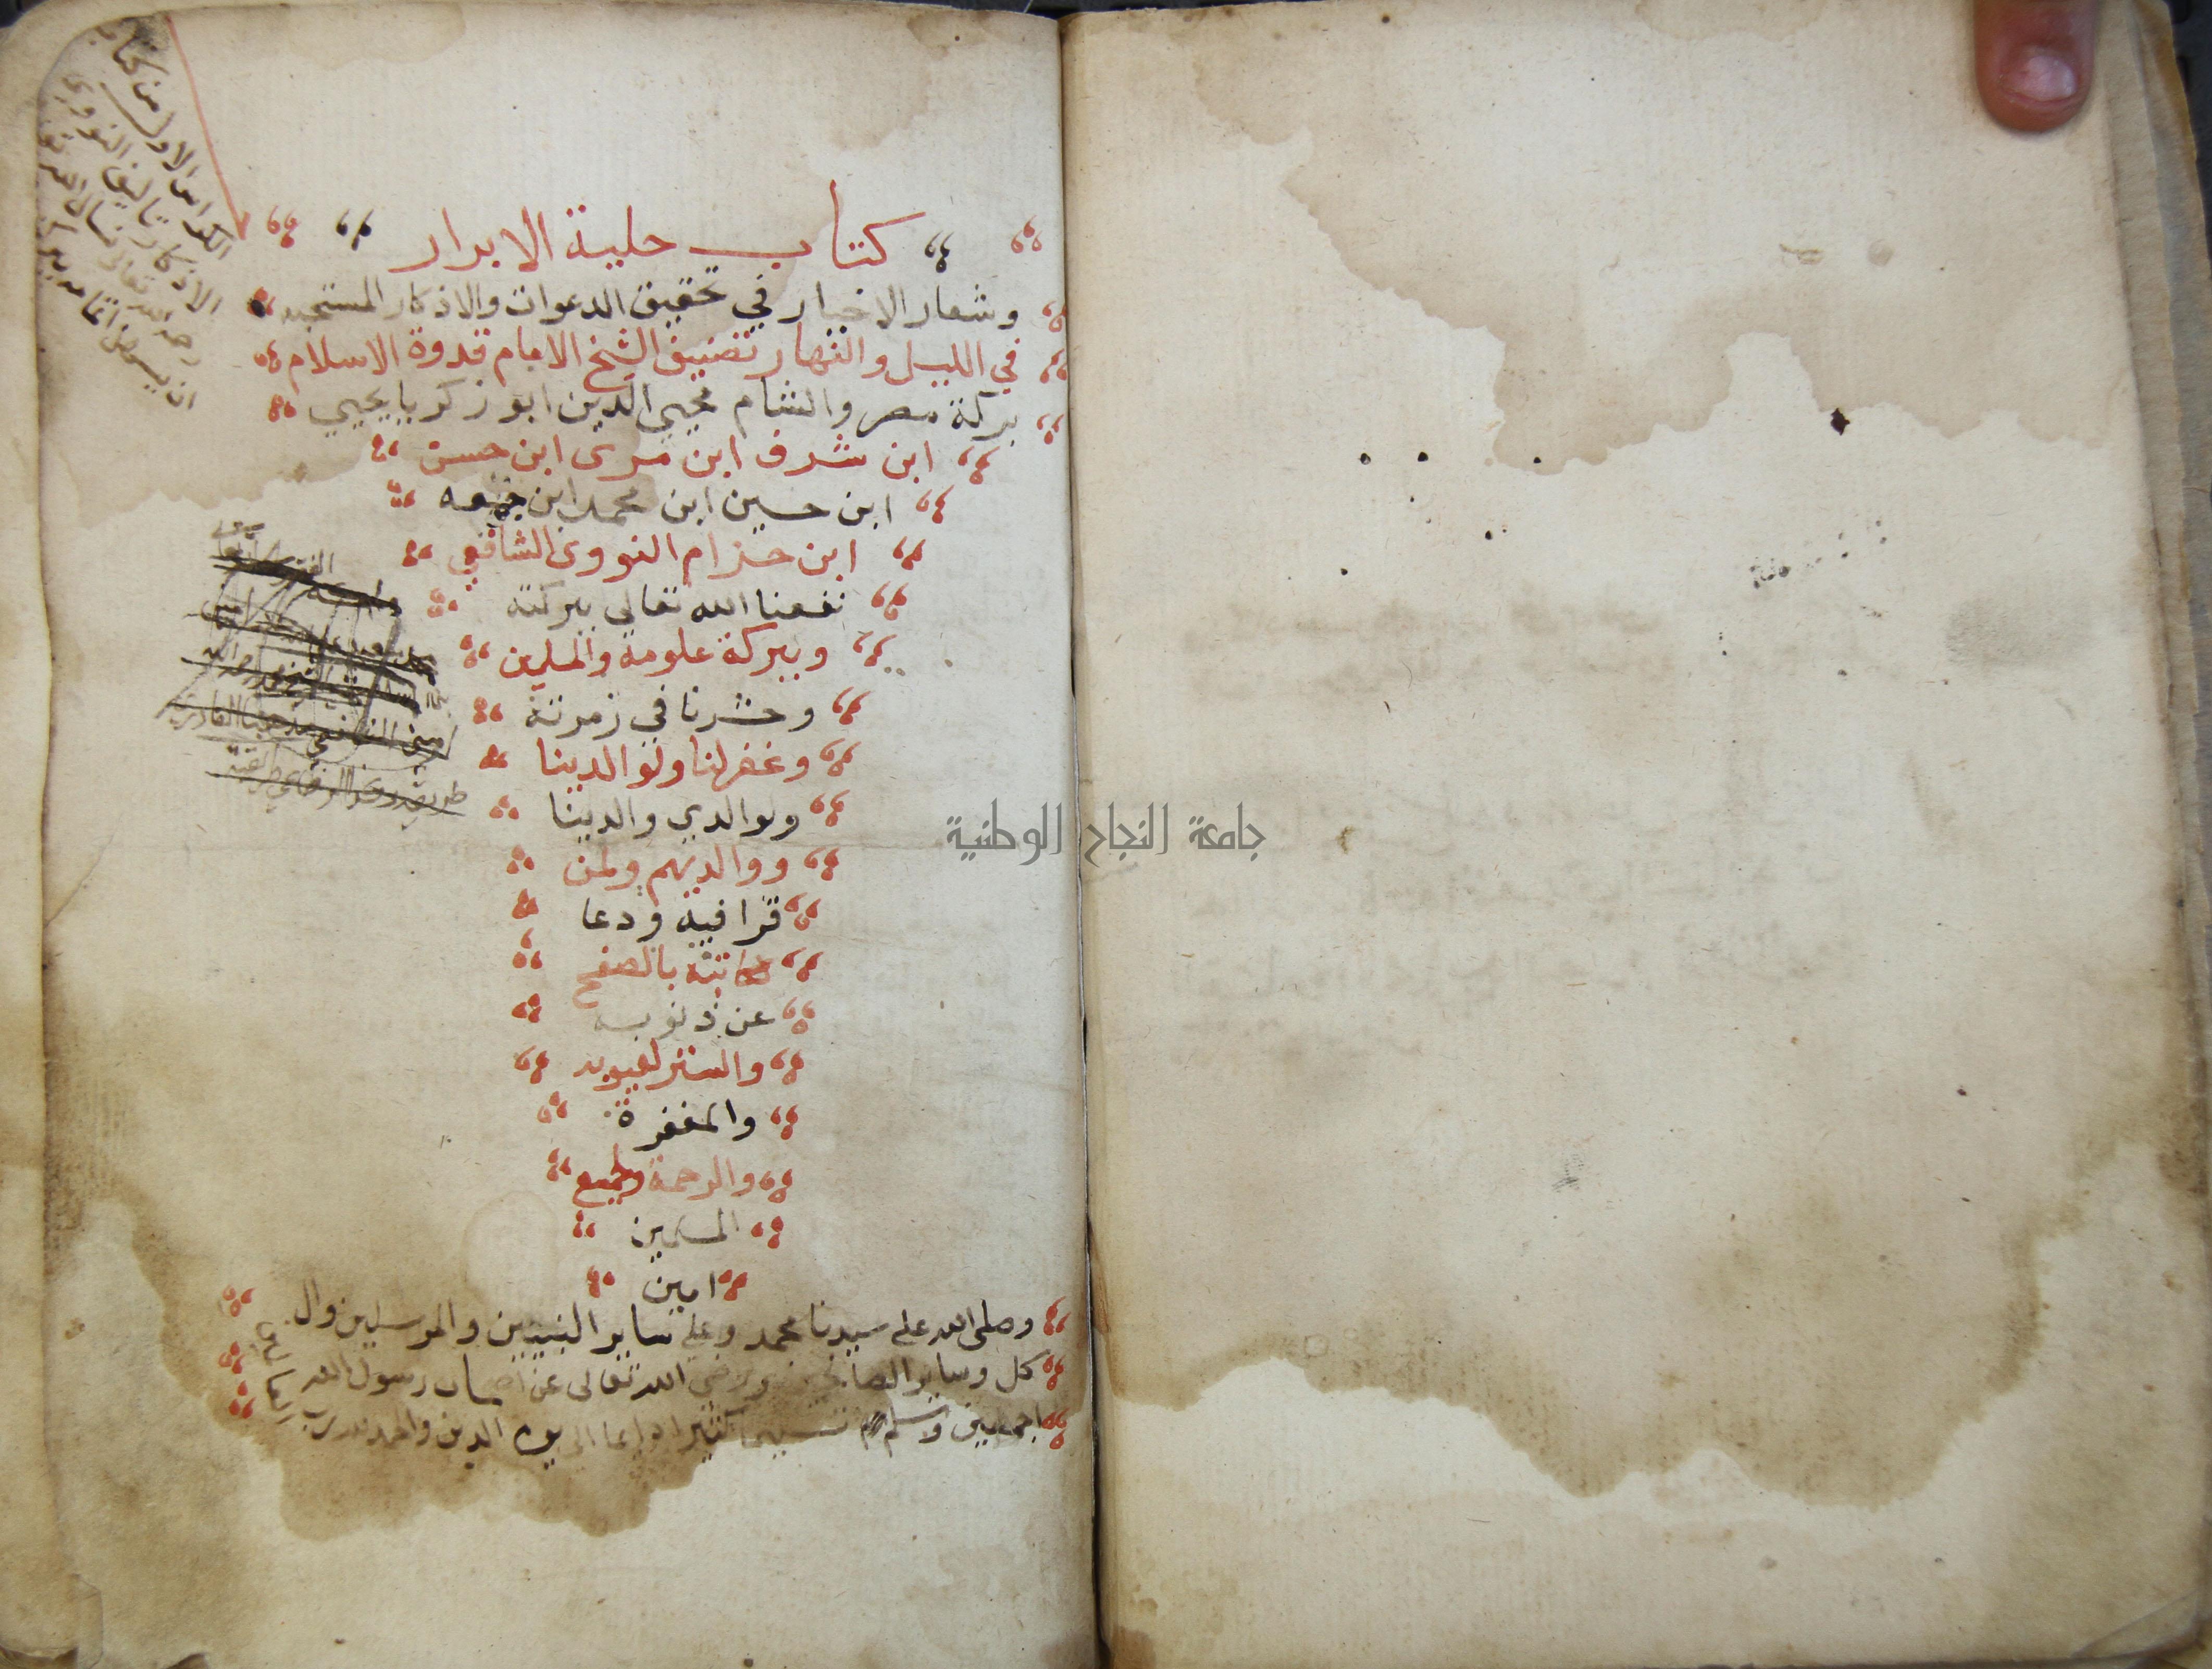 كتاب حلية الابرار
وشعار الاخيار في تحقيق الدعوات والاذكار المستحبه
في الليل والنهار تصنيف الشيخ الامام قدوة الاسلام
بركة مصر والشام محيي الدين ابو زكريا يحيي
ابن شرف ابن مرى ابن حسن
ابن حسين ابن محمد ابن جمعه
ابن حزام النووى الشافعي
نفعنا الله تعالى ببركته
وببركة علومه والمسلمين
وحشرنا في زمرته
وغفر لنا ولوالدينا
ولوالدي والدينا
ووالديهم ولمن
قرا فيه ودعا
لكاتبه بالصفح
عن ذنوبه
والستر لعيوبه
والمغفرة
والرحمة ولجميع
المسلمين
امين
وصلى الله على سيدنا محمد وعلى ساير النبيين والمرسلين وال
كل وساير الصالحين ورضي الله تعالى عن اصحاب رسول الله
اجمعين وسلم تسليما كثيرا دايما الى يوم الدين والحمد لله رب
الكراس الاول من كتاب
الاذكار تاليف النووي
رحمه الله تعالى
جامعة النجاح الوطنية